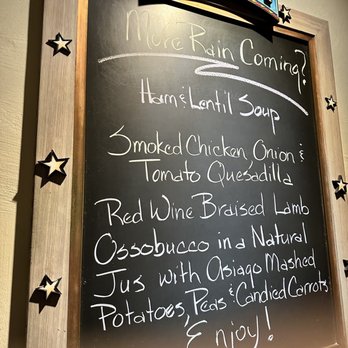 More Rain Coming?
Ham & Lentil Soup
Smoked Chicken, Onion &
Tomato Quesadilla
Red Wine Braised Lamb
Ossobucco in a Natural
Jus with Asiago Mashed
Potatoes, Peas & Candied Carrots
Enjoy!